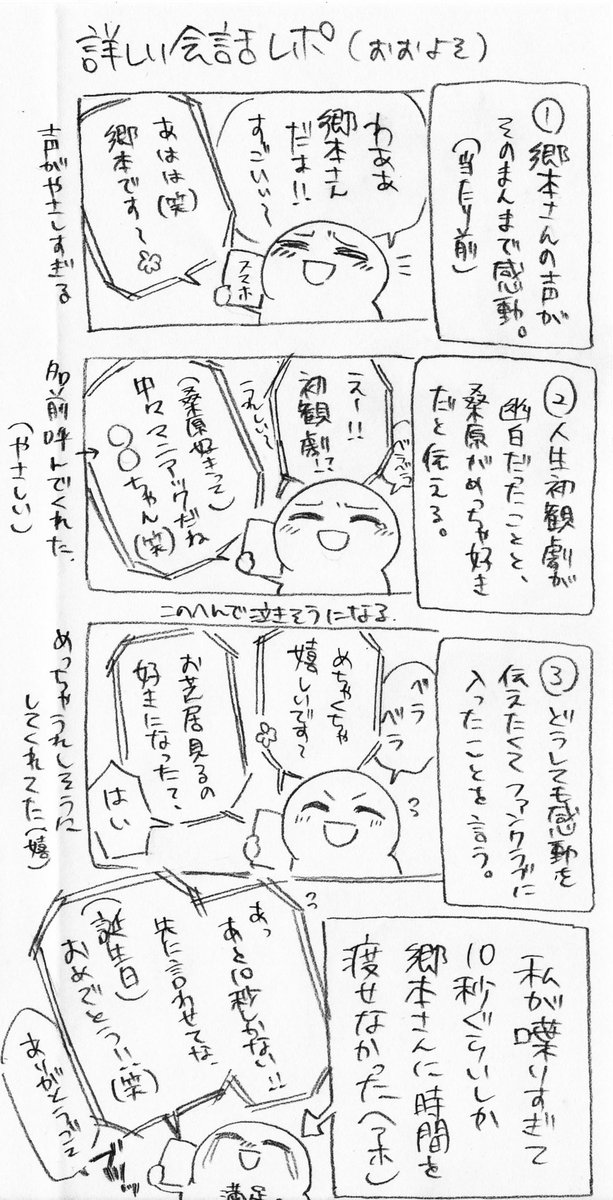 詳しい会話レポ(おおよそ)
①郷本さんの声が
そのまんまで感動。
(当たり前)
わああ
郷本さん
だぁ!!
すごいい〜
スマホ
あはは(笑)
郷本です〜
声がやさしすぎる
②人生初観劇が
幽白だったことと、
桑原がめっちゃ好き
だと伝える。
えー!!
初観劇!?
うれしい〜
(桑原好きって)
中々マニアックだね
〇〇ちゃん(笑)
名前呼んでくれた
(やさしい)
このへんで泣きそうになる
③どうしても感動を
伝えたくてファンクラブに
入ったことを言う。
ベラ
ベラ
めちゃくちゃ
嬉しいです〜
お芝居見るの
好きになったて、
はい
めっちゃうれしそうに
してくれてた(嬉)
私が喋りすぎて
10秒ぐらいしか
郷本さんに時間を
渡せなかった(アホ)
あっ
あと10秒しかない!!
先に言わせてな、
(誕生日)
おめでとう!!(笑)
ありがとうござ
ブツッ
満足。